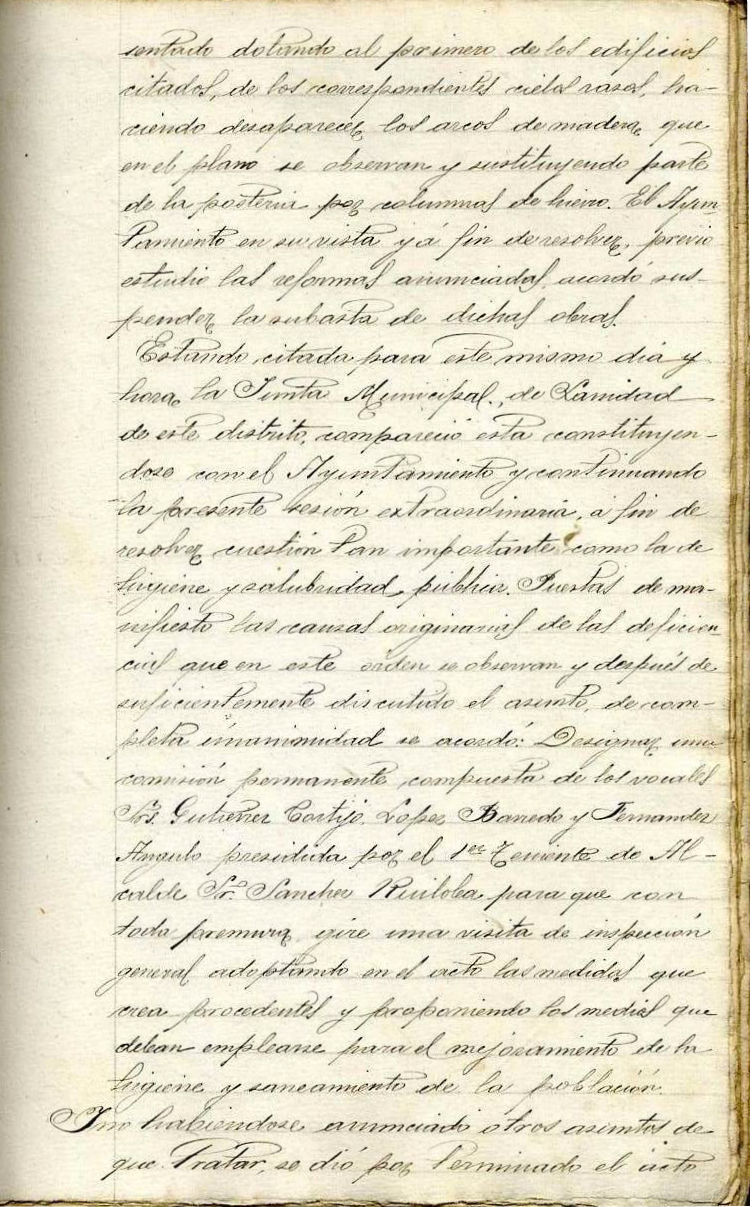 sentado dotando al primero de los edificios
citados, de los correspondientes cielos rasos, ha-
ciendo desaparecer los arcos de madera que
en el plano se observan y sustituyendo parte
de la posterior por columnas de hierro. El Ayun-
tamiento en su vista y á fin de resolver, previo
estudio las reformas anunciadas, acordó sus-
pender la subasta de dichas obras.
Estando citada para este mismo dia y
hora la Junta Municipal, de Sanidad
de este distrito, compareció esta constituyen-
dose con el Ayuntamiento y continuando
la presente sesión extraordinaria, á fin de
resolver cuestión tan importante como la de
higiene y salubridad pública. Puestas de ma-
nifiesto las causas originarias de las deficien-
cias que en este orden se observan y después de
suficientemente discutido el asunto, de com-
pleta unanimidad se acordó: Designar una
comisión permanente compuesta de los vocales
Srs. Gutierrez Cortijo, Lopez Banedo y Fernandez
Angulo presidida por el 1er Teniente de Al-
calde Sr. Sanchez Ruiloba para que con
toda premura gire una visita de inspección
general adoptando en el acto las medidas que
crea procedentes y proponiendo los medios que
deban emplearse para el mejoramiento de la
higiene y saneamiento de la población.
Y no habiendose anunciado otros asuntos de
que tratar, se dió por terminado el acto